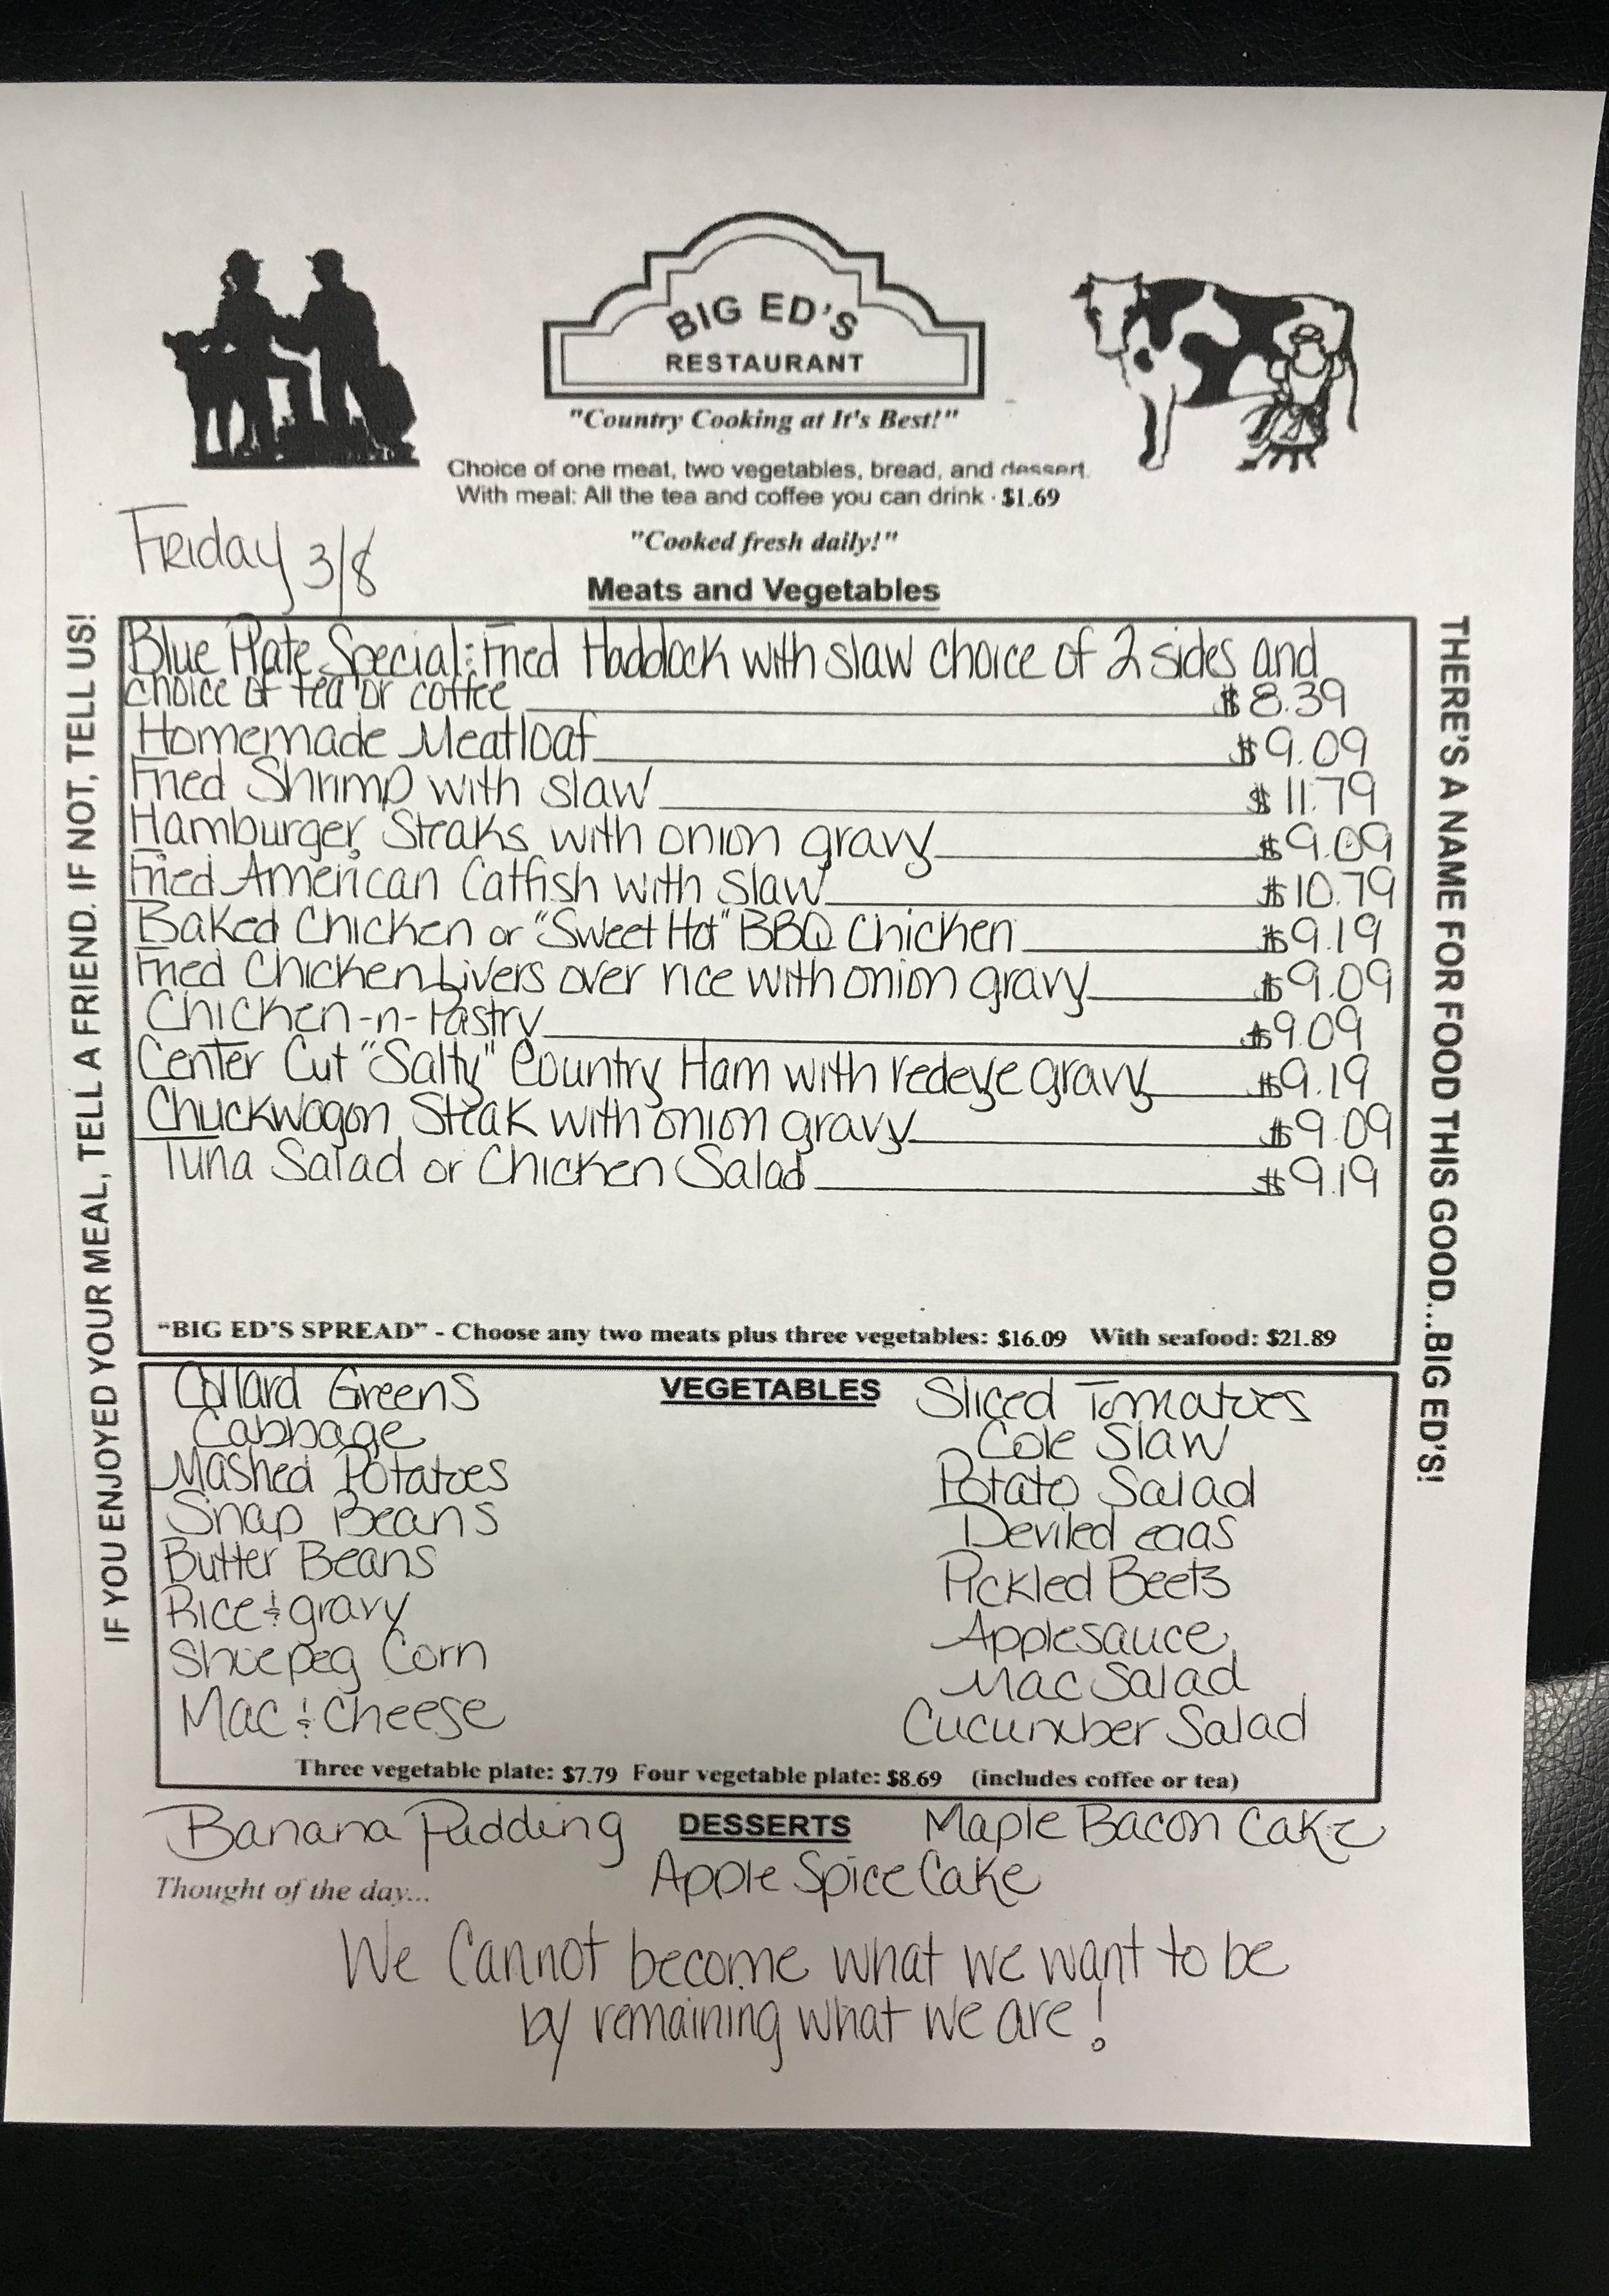 BIG ED'S
RESTAURANT
"Country Cooking at It's Best!"
Choice of one meat, two vegetables, bread, and dessert.
With meal: All the tea and coffee you can drink · $1.69
"Cooked fresh daily!"
Friday 3/8
Meats and Vegetables
IF YOU ENJOYED YOUR MEAL, TELL A FRIEND. IF NOT, TELL US!
Blue Plate Special: Fried Haddock with slaw choice of 2 sides and
choice of tea or coffee $8.39
Homemade Meatloaf $9.09
Fried Shrimp with slaw $11.79
Hamburger Steaks with onion gravy $9.09
Fried American Catfish with slaw $10.79
Baked Chicken or "Sweet Hot" BBQ Chicken $9.19
Fried Chicken Livers over rice with onion gravy $9.09
Chicken-n-Pastry $9.09
Center Cut "Salty" Country Ham with redeye gravy $9.19
Chuckwagon Steak with onion gravy $9.09
Tuna Salad or Chicken Salad $9.19
"BIG ED'S SPREAD" - Choose any two meats plus three vegetables: $16.09 With seafood: $21.89
THERE'S A NAME FOR FOOD THIS GOOD...BIG ED'S!
VEGETABLES
Collard Greens
Cabbage
Mashed Potatoes
Snap Beans
Butter Beans
Rice & gravy
Shoepeg Corn
Mac & Cheese
Sliced Tomatoes
Cole Slaw
Potato Salad
Deviled eggs
Pickled Beets
Applesauce
Mac Salad
Cucumber Salad
Three vegetable plate: $7.79 Four vegetable plate: $8.69 (includes coffee or tea)
Banana Pudding DESSERTS Maple Bacon Cake
Apple Spice Cake
Thought of the day...
We Cannot become what we want to be
by remaining what we are!